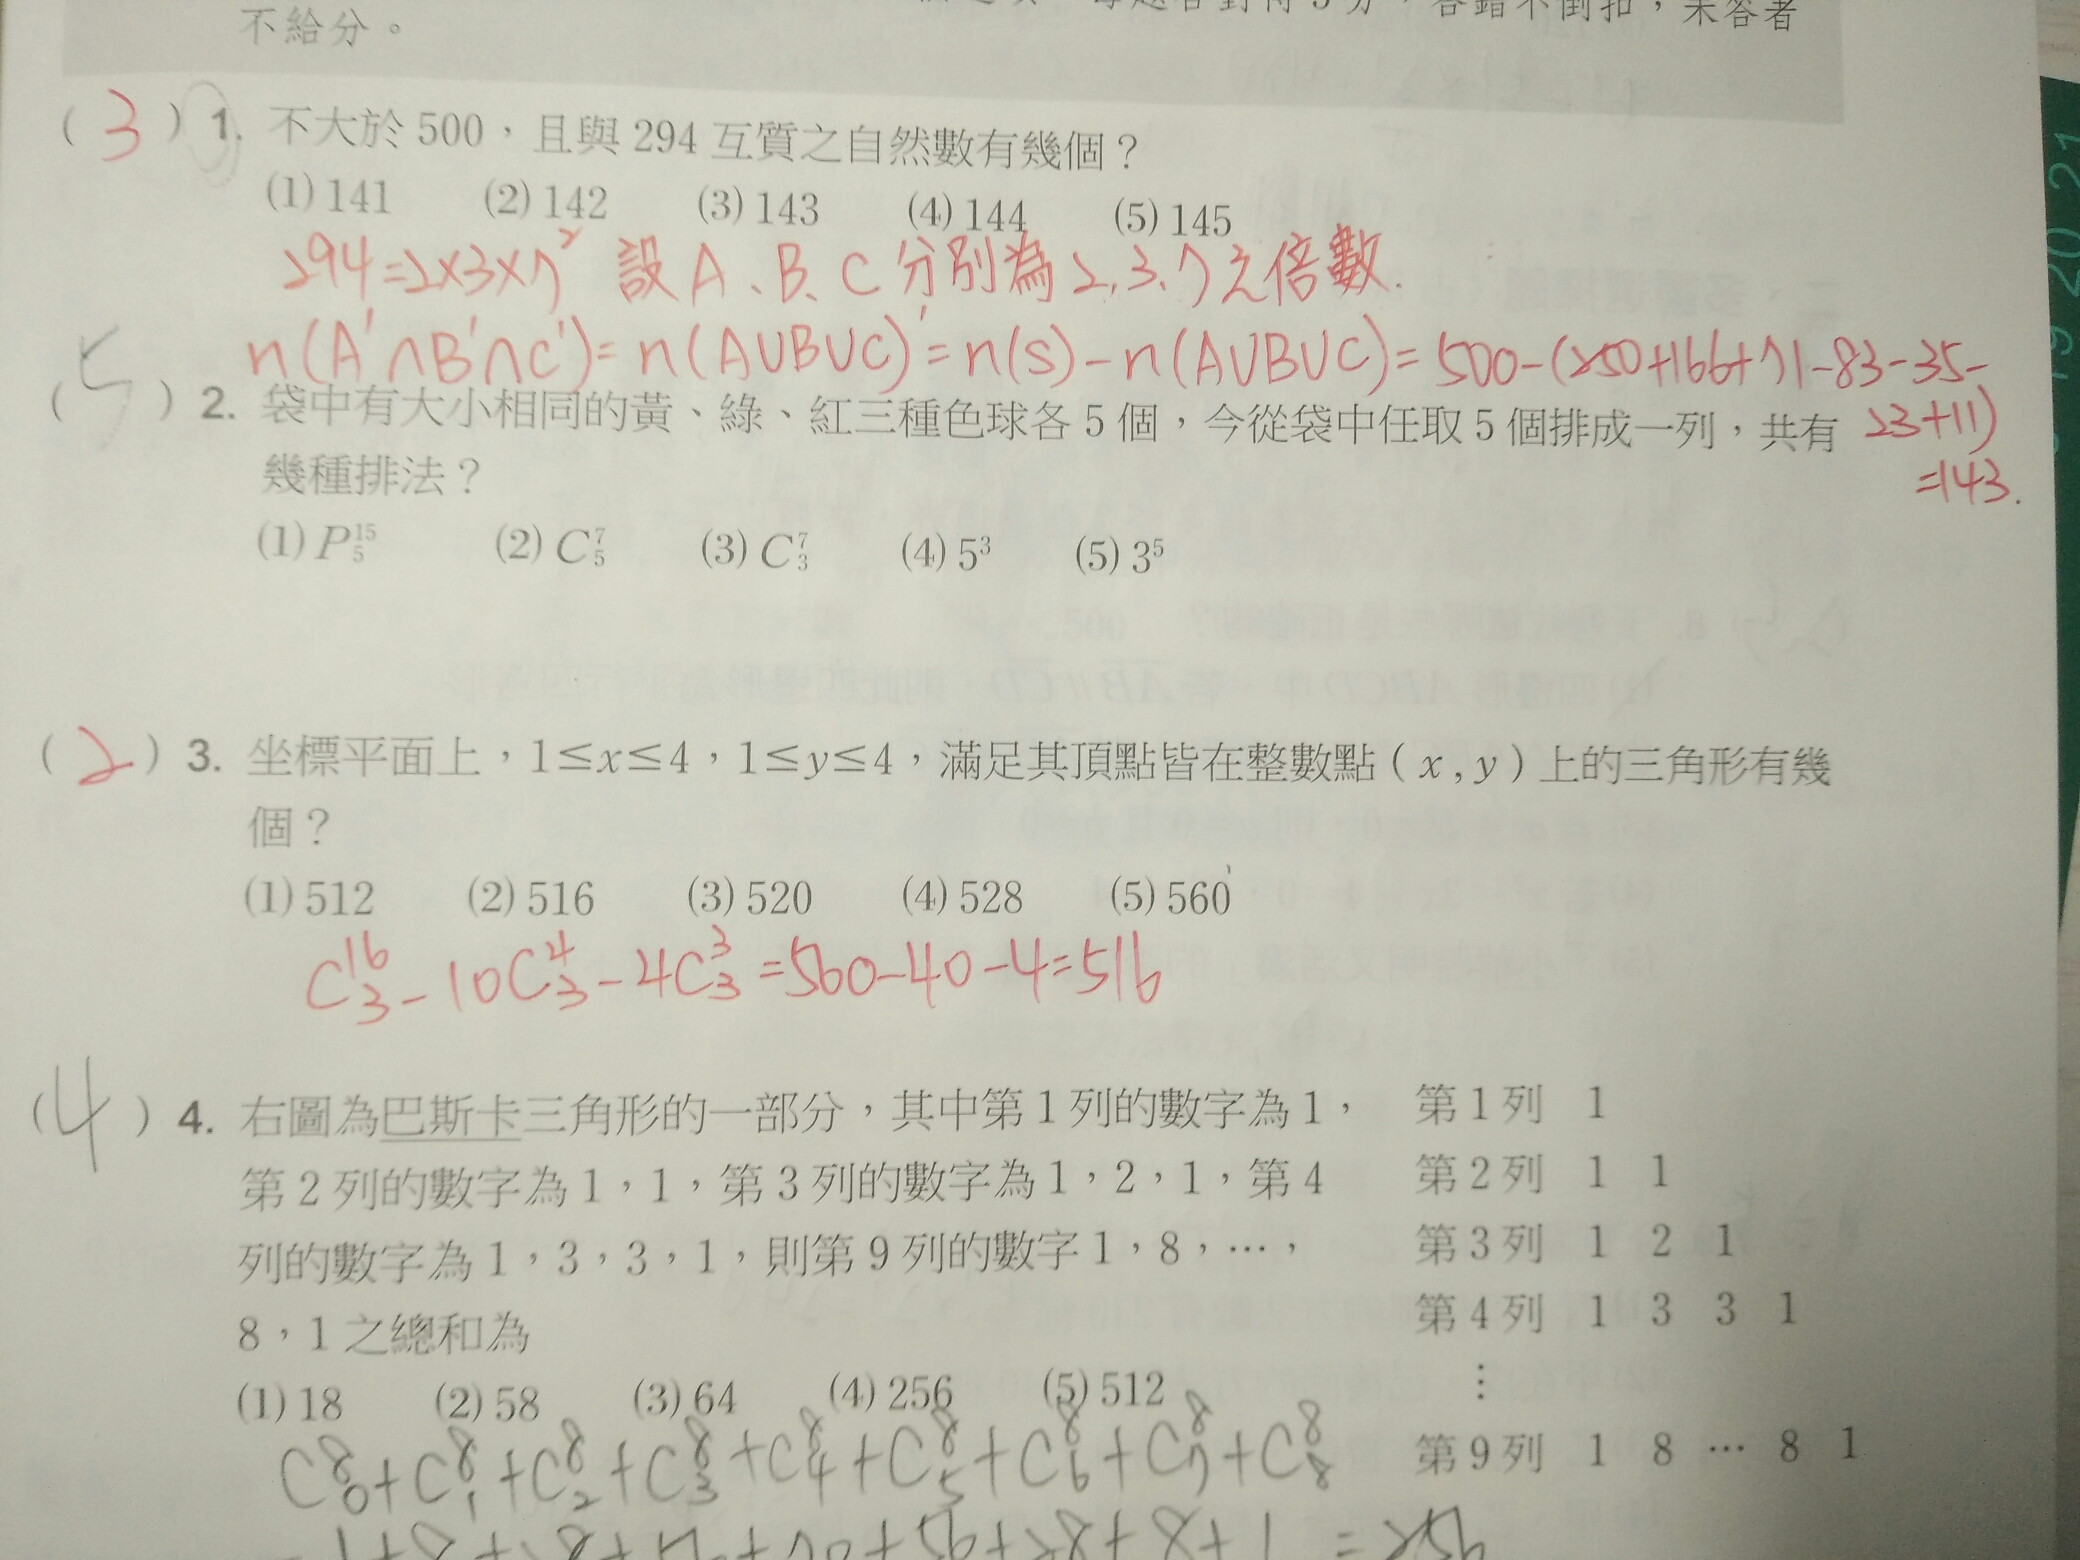 不給分。 答錯不倒扣，未答者
( 3 ) 1. 不大於 500，且與 294 互質之自然數有幾個？
(1) 141 (2) 142 (3) 143 (4) 144 (5) 145
294=2×3×7² 設A、B、C分別為2,3、7之倍數.
n(A'∩B'∩C')=n(A∪B∪C)'=n(S)-n(A∪B∪C)=500-(250+166+71-83-35-
23+11)
=143.
( 5 ) 2. 袋中有大小相同的黃、綠、紅三種色球各 5 個，今從袋中任取 5 個排成一列，共有
幾種排法？
(1) P¹⁵₅ (2) C⁷₅ (3) C⁷₃ (4) 5³ (5) 3⁵
( 2 ) 3. 坐標平面上，1≤x≤4，1≤y≤4，滿足其頂點皆在整數點 ( x , y ) 上的三角形有幾
個？
(1) 512 (2) 516 (3) 520 (4) 528 (5) 560
C¹⁶₃-10C⁴₃-4C³₃=560-40-4=516
( 4 ) 4. 右圖為巴斯卡三角形的一部分，其中第 1 列的數字為 1，
第 2 列的數字為 1，1，第 3 列的數字為 1，2，1，第 4
列的數字為 1，3，3，1，則第 9 列的數字 1，8，…，
8，1 之總和為
(1) 18 (2) 58 (3) 64 (4) 256 (5) 512
C⁸₀+C⁸₁+C⁸₂+C⁸₃+C⁸₄+C⁸₅+C⁸₆+C⁸₇+C⁸₈
第 1 列 1
第 2 列 1 1
第 3 列 1 2 1
第 4 列 1 3 3 1
⋮
第 9 列 1 8 … 8 1
19 20 21